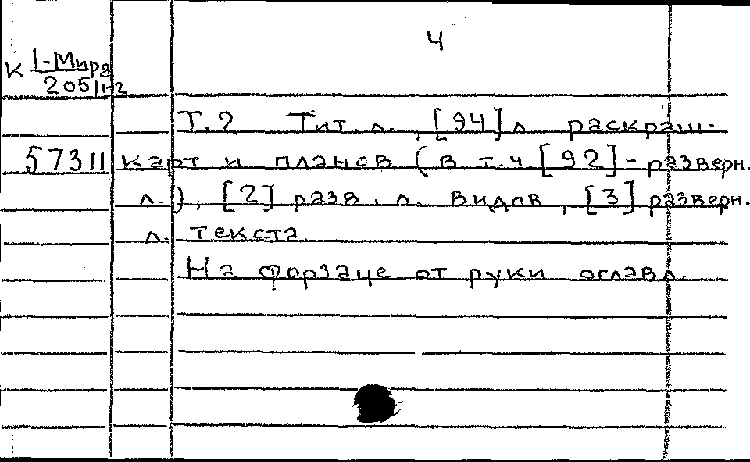 4
К 1-Мира
205/1-2
Т.2 Тит. л., [94] л раскраш.
57311 карт и планов (в т.ч [92] - разверн.
л.), [2] разв. л. видов, [3] разверн.
л. текста
На форзаце от руки оглавл.